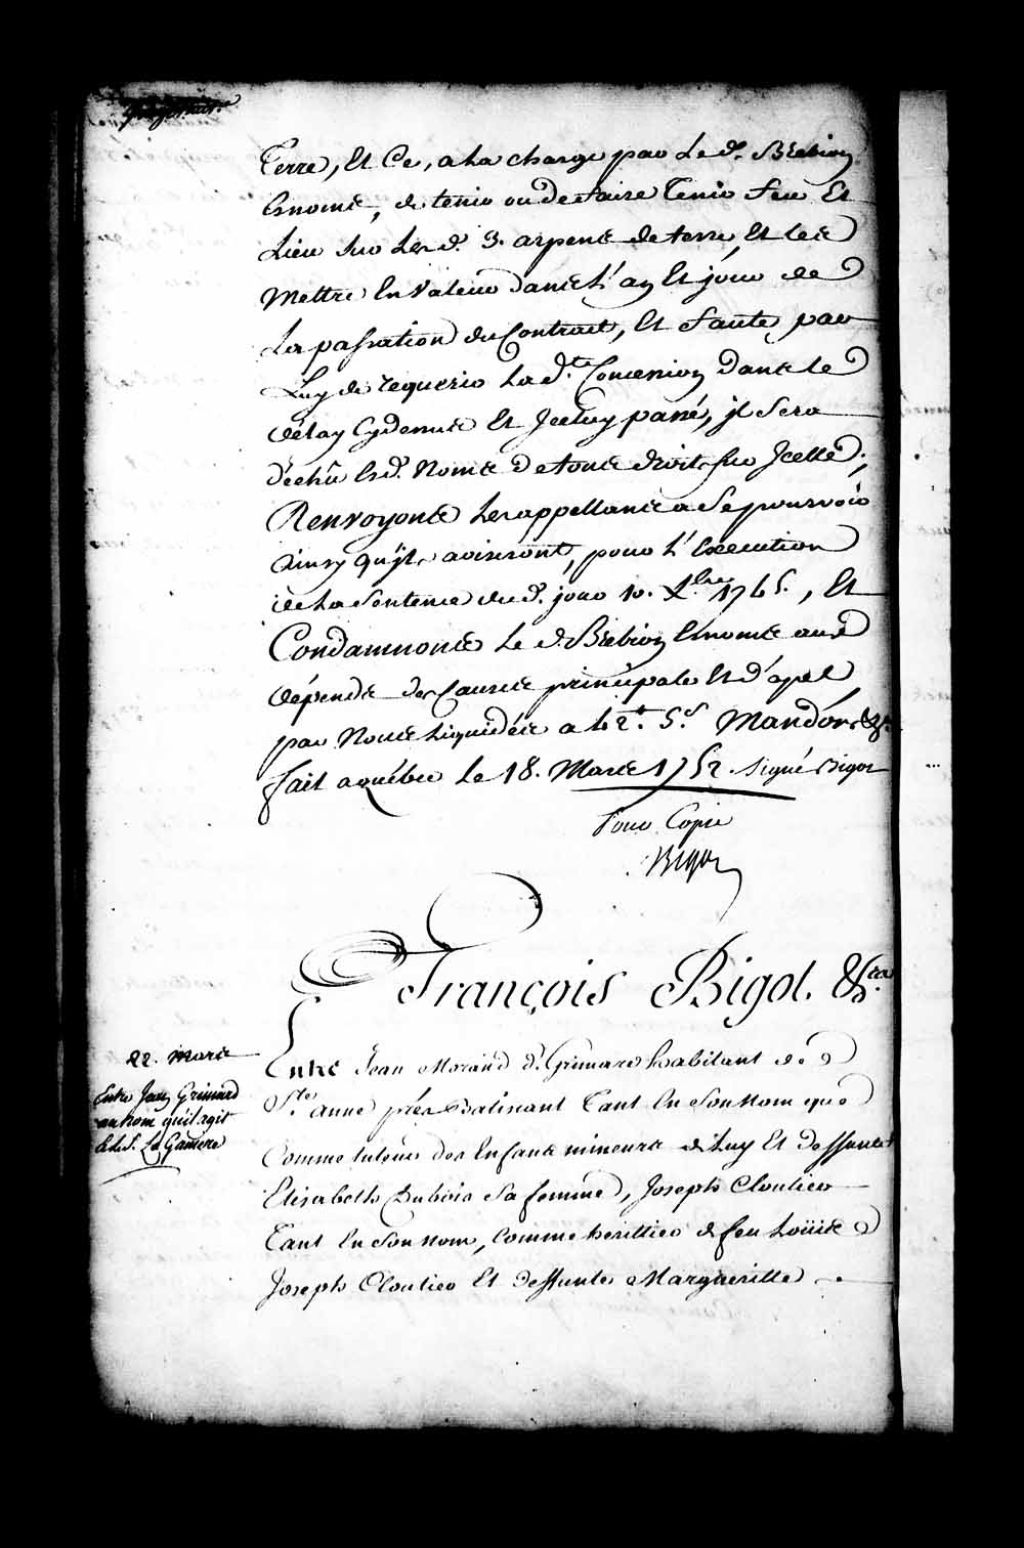 Terre, Et Ce, a La charge par Le d. Brebion
Esnoms, de tenir ou de faire Tenir feu Et
Lieu sur Les d. 3. arpents de terre, Et les
Mettre En Valeur dans L'an Et jour de
La passation du Contract, Et faute, par
Luy de requerir La d.te Concession dans le
délay Cy dessus Et Iceluy passé, il sera
déchû Esd. Noms de tous droits sur Icelle;
Renvoyons Les appellants a Se pourvoir
Ainsy qu'ils aviseront, pour L'Execution
de La Sentence du d. jour 10. X.bre 1745., Et
Condamnons Le d. Brebion Esnoms aux
dépends des Causes principale Et d'apel
par Nous Liquidés a 2.# 5.s Mandons &a.
fait a québec Le 18. Mars 1752. Signé Bigot
Pour Copie
Bigot
François Bigot. &c.ra
22. Mars
Entre Jean Grimard
au nom qu'il agit
& le S. La Ganiere
Entre Jean Morand d. Grimard habitant de
S.te anne près Batiscant Tant En Son Nom que
Comme tuteur des Enfants mineurs de Luy Et deffunte
Elisabeth Dubois Sa femme, Joseph Cloutier
Tant En Son Nom, Comme heritier de feu Loüis
Joseph Cloutier Et deffunte Margueritte